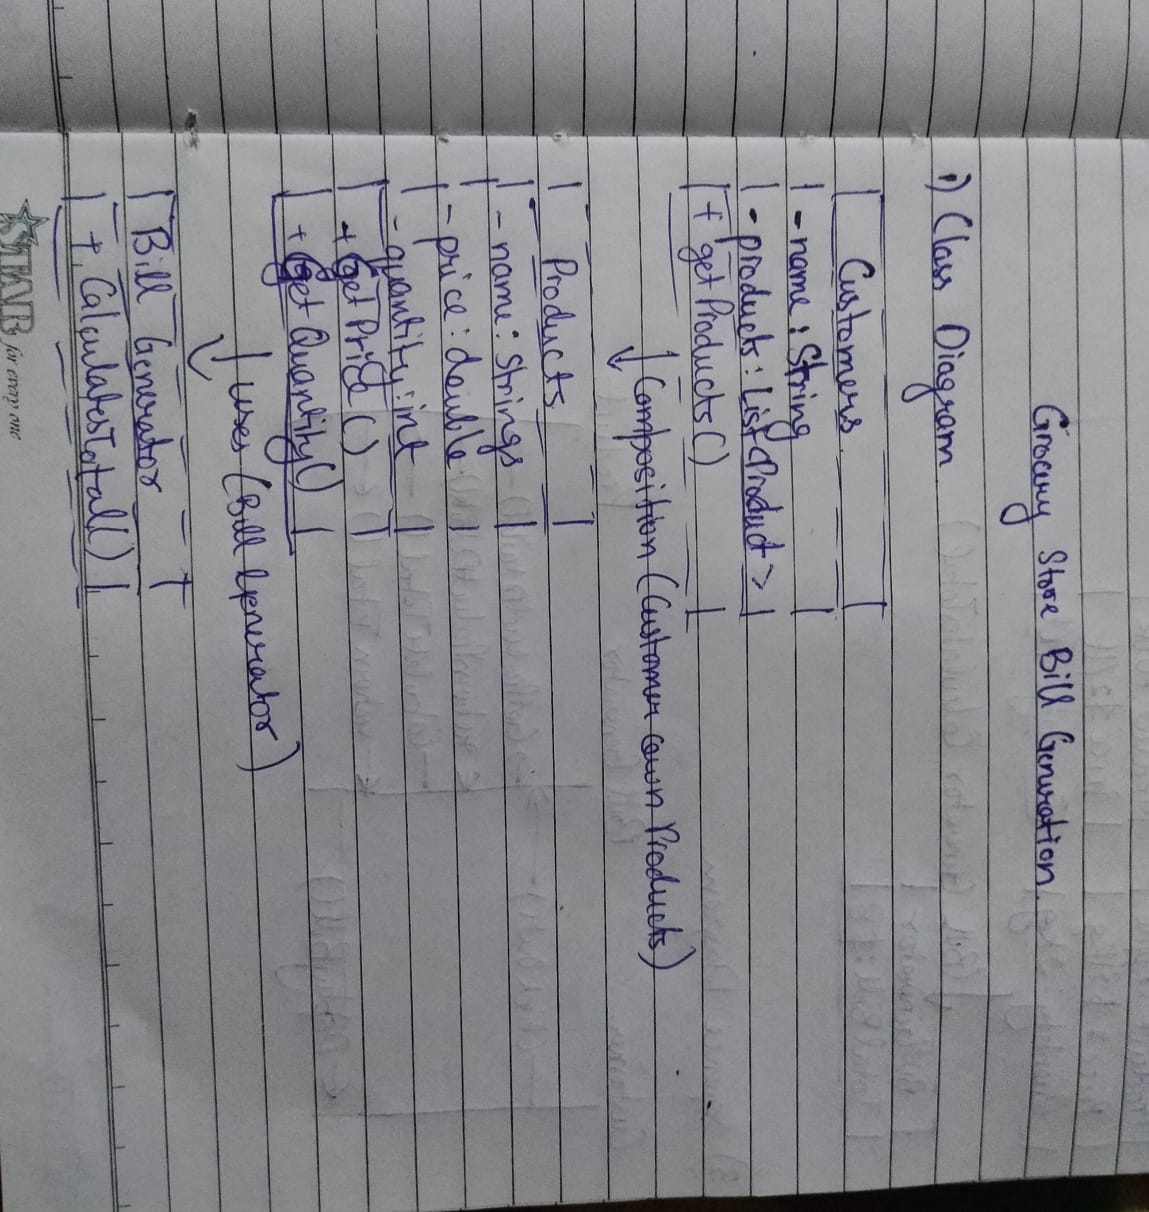 Grocery Store Bill Generation.
1) Class Diagram
| Customers |
| - name : String |
| - products : List<Product> |
| + getProducts() |
↓ Composition (Customer own Products)
| Products |
| - name : Strings |
| - price : double |
| - quantity : int |
| + getPrice() |
| + get Quantity() |
↓ uses (Bill Generator)
| Bill Generator |
| + CalculatesTotal() |
STAR for every one